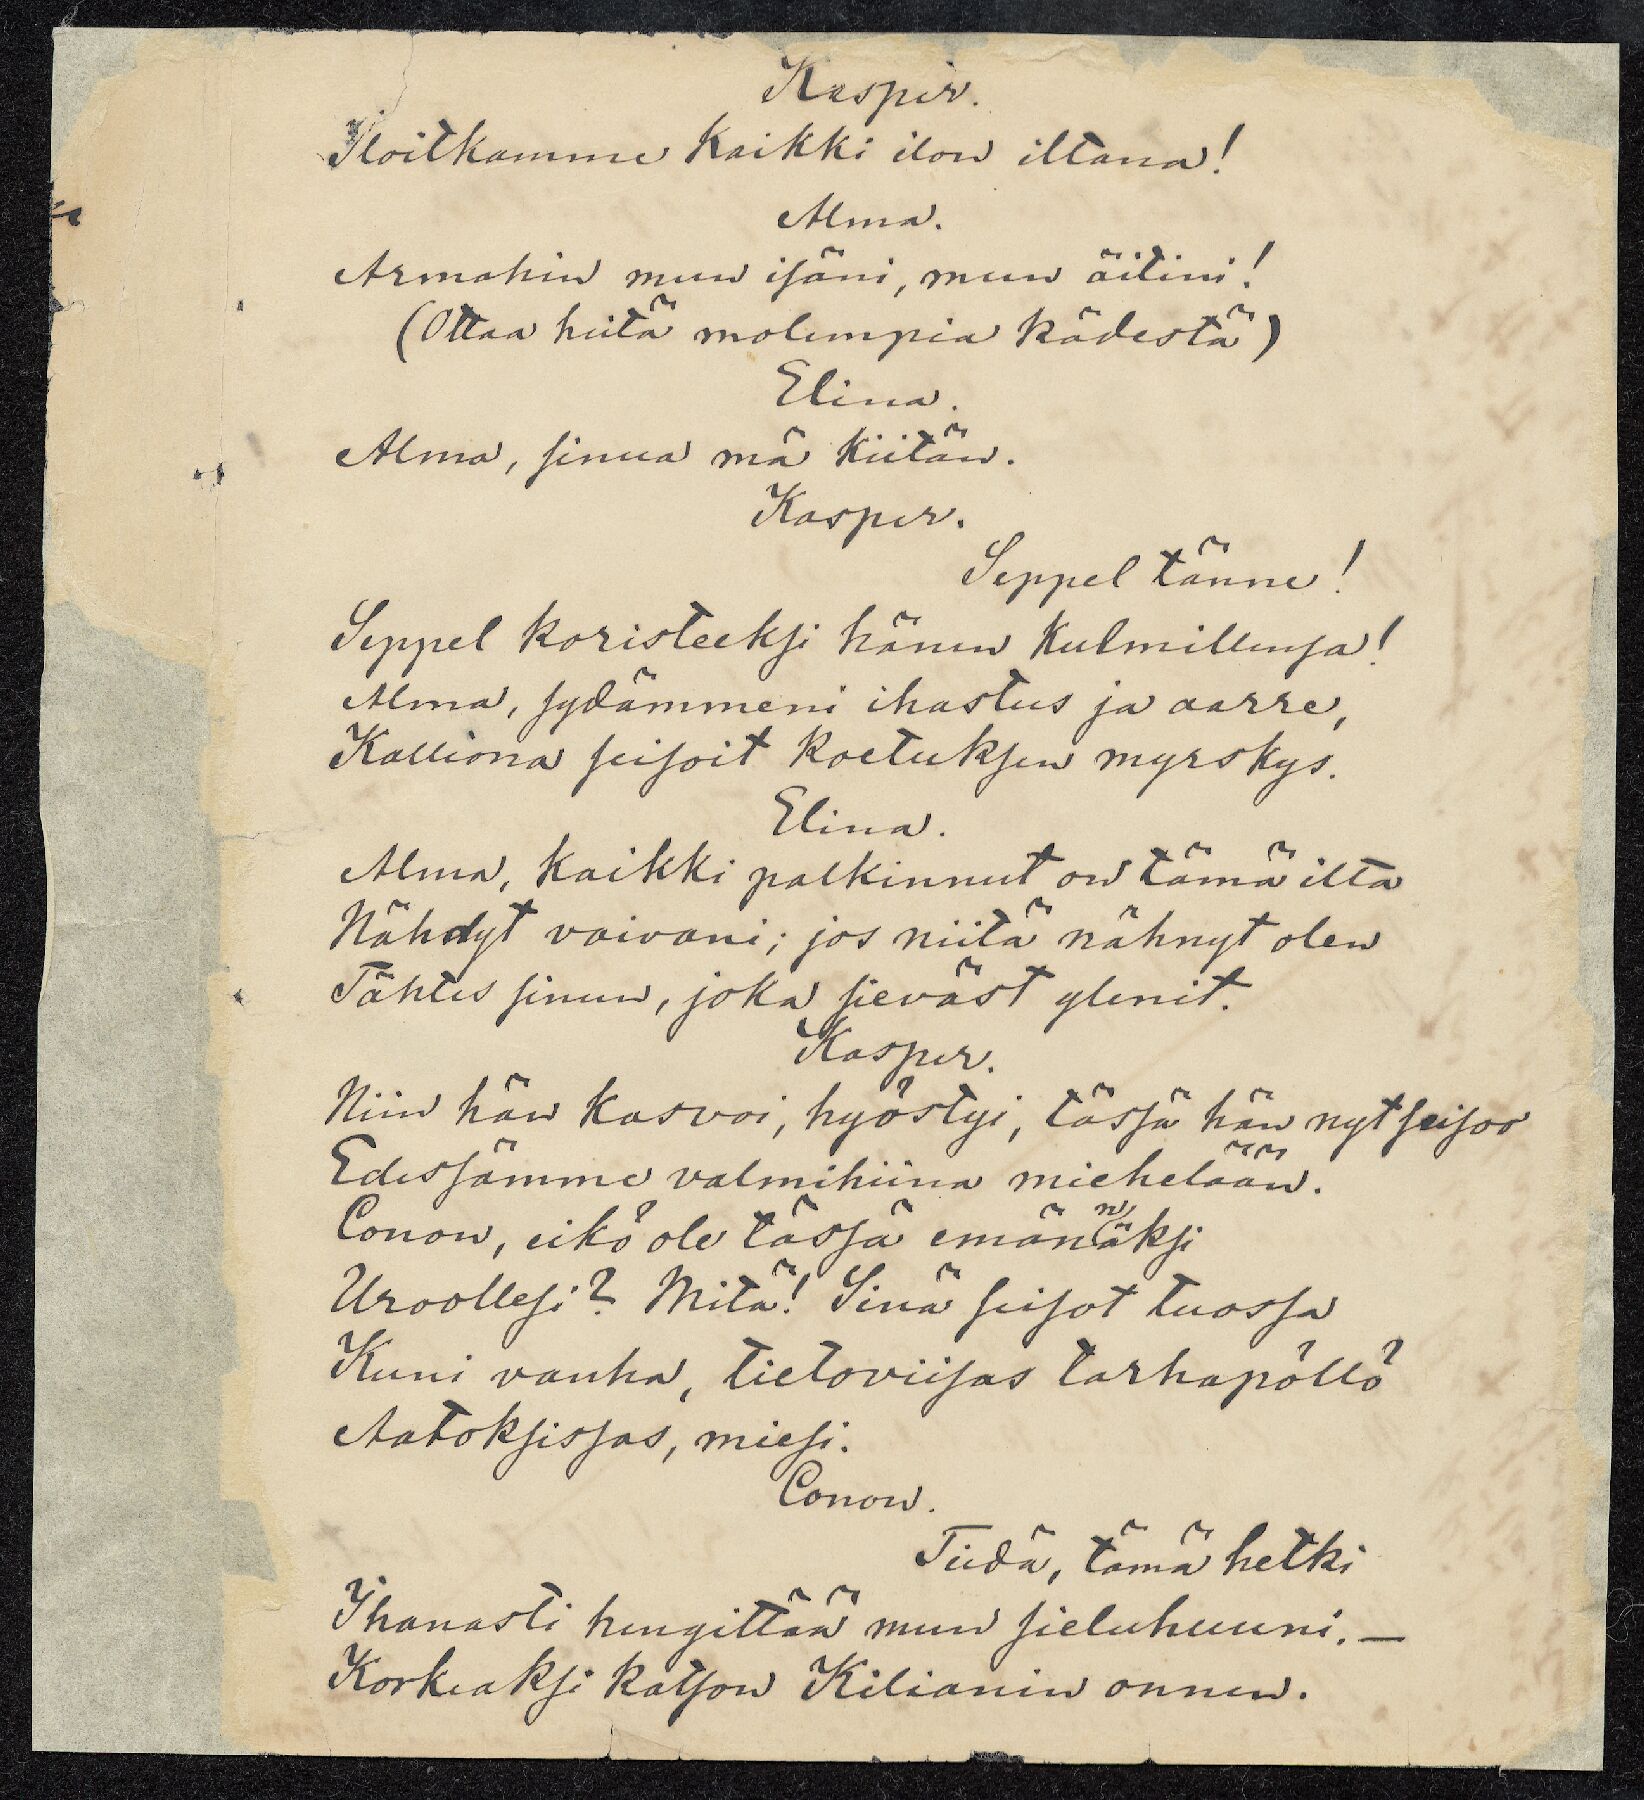 Kasper.
Iloitkamme kaikki ilon iltana!
Alma.
Armahin mun isäni, mun äitini!
(Ottaa heitä molempia kädestä)
Elina.
Alma, sinua mä kiitän.
Kasper.
Seppel tänne!
Seppel koristeeksi hänen kulmillensa!
Alma, sydämmeni ihastus ja aarre,
Kalliona seisoit koetuksen myrskys.
Elina.
Alma, kaikki palkinnut on tämä ilta
Nähdyt vaivani; jos niitä nähnyt olen
Tähtes sinun, joka sieväst ylenit.
Kasper.
Niin hän kasvoi, hyöstyi, tässä hän nyt seisoo
Edessämme valmihiina miehelään.
Conon, eikö ole tässä emännäksi
Uroollesi? Mitä! Sinä seisot tuossa
Kuni vanha, tietoviisas tarhapöllö
Aatoksissas, miesi.
Conon.
Tiedä, tämä hetki
Ihanasti hengittää mun sieluhuuni. —
Korkeaksi katson Kilianin onnen.